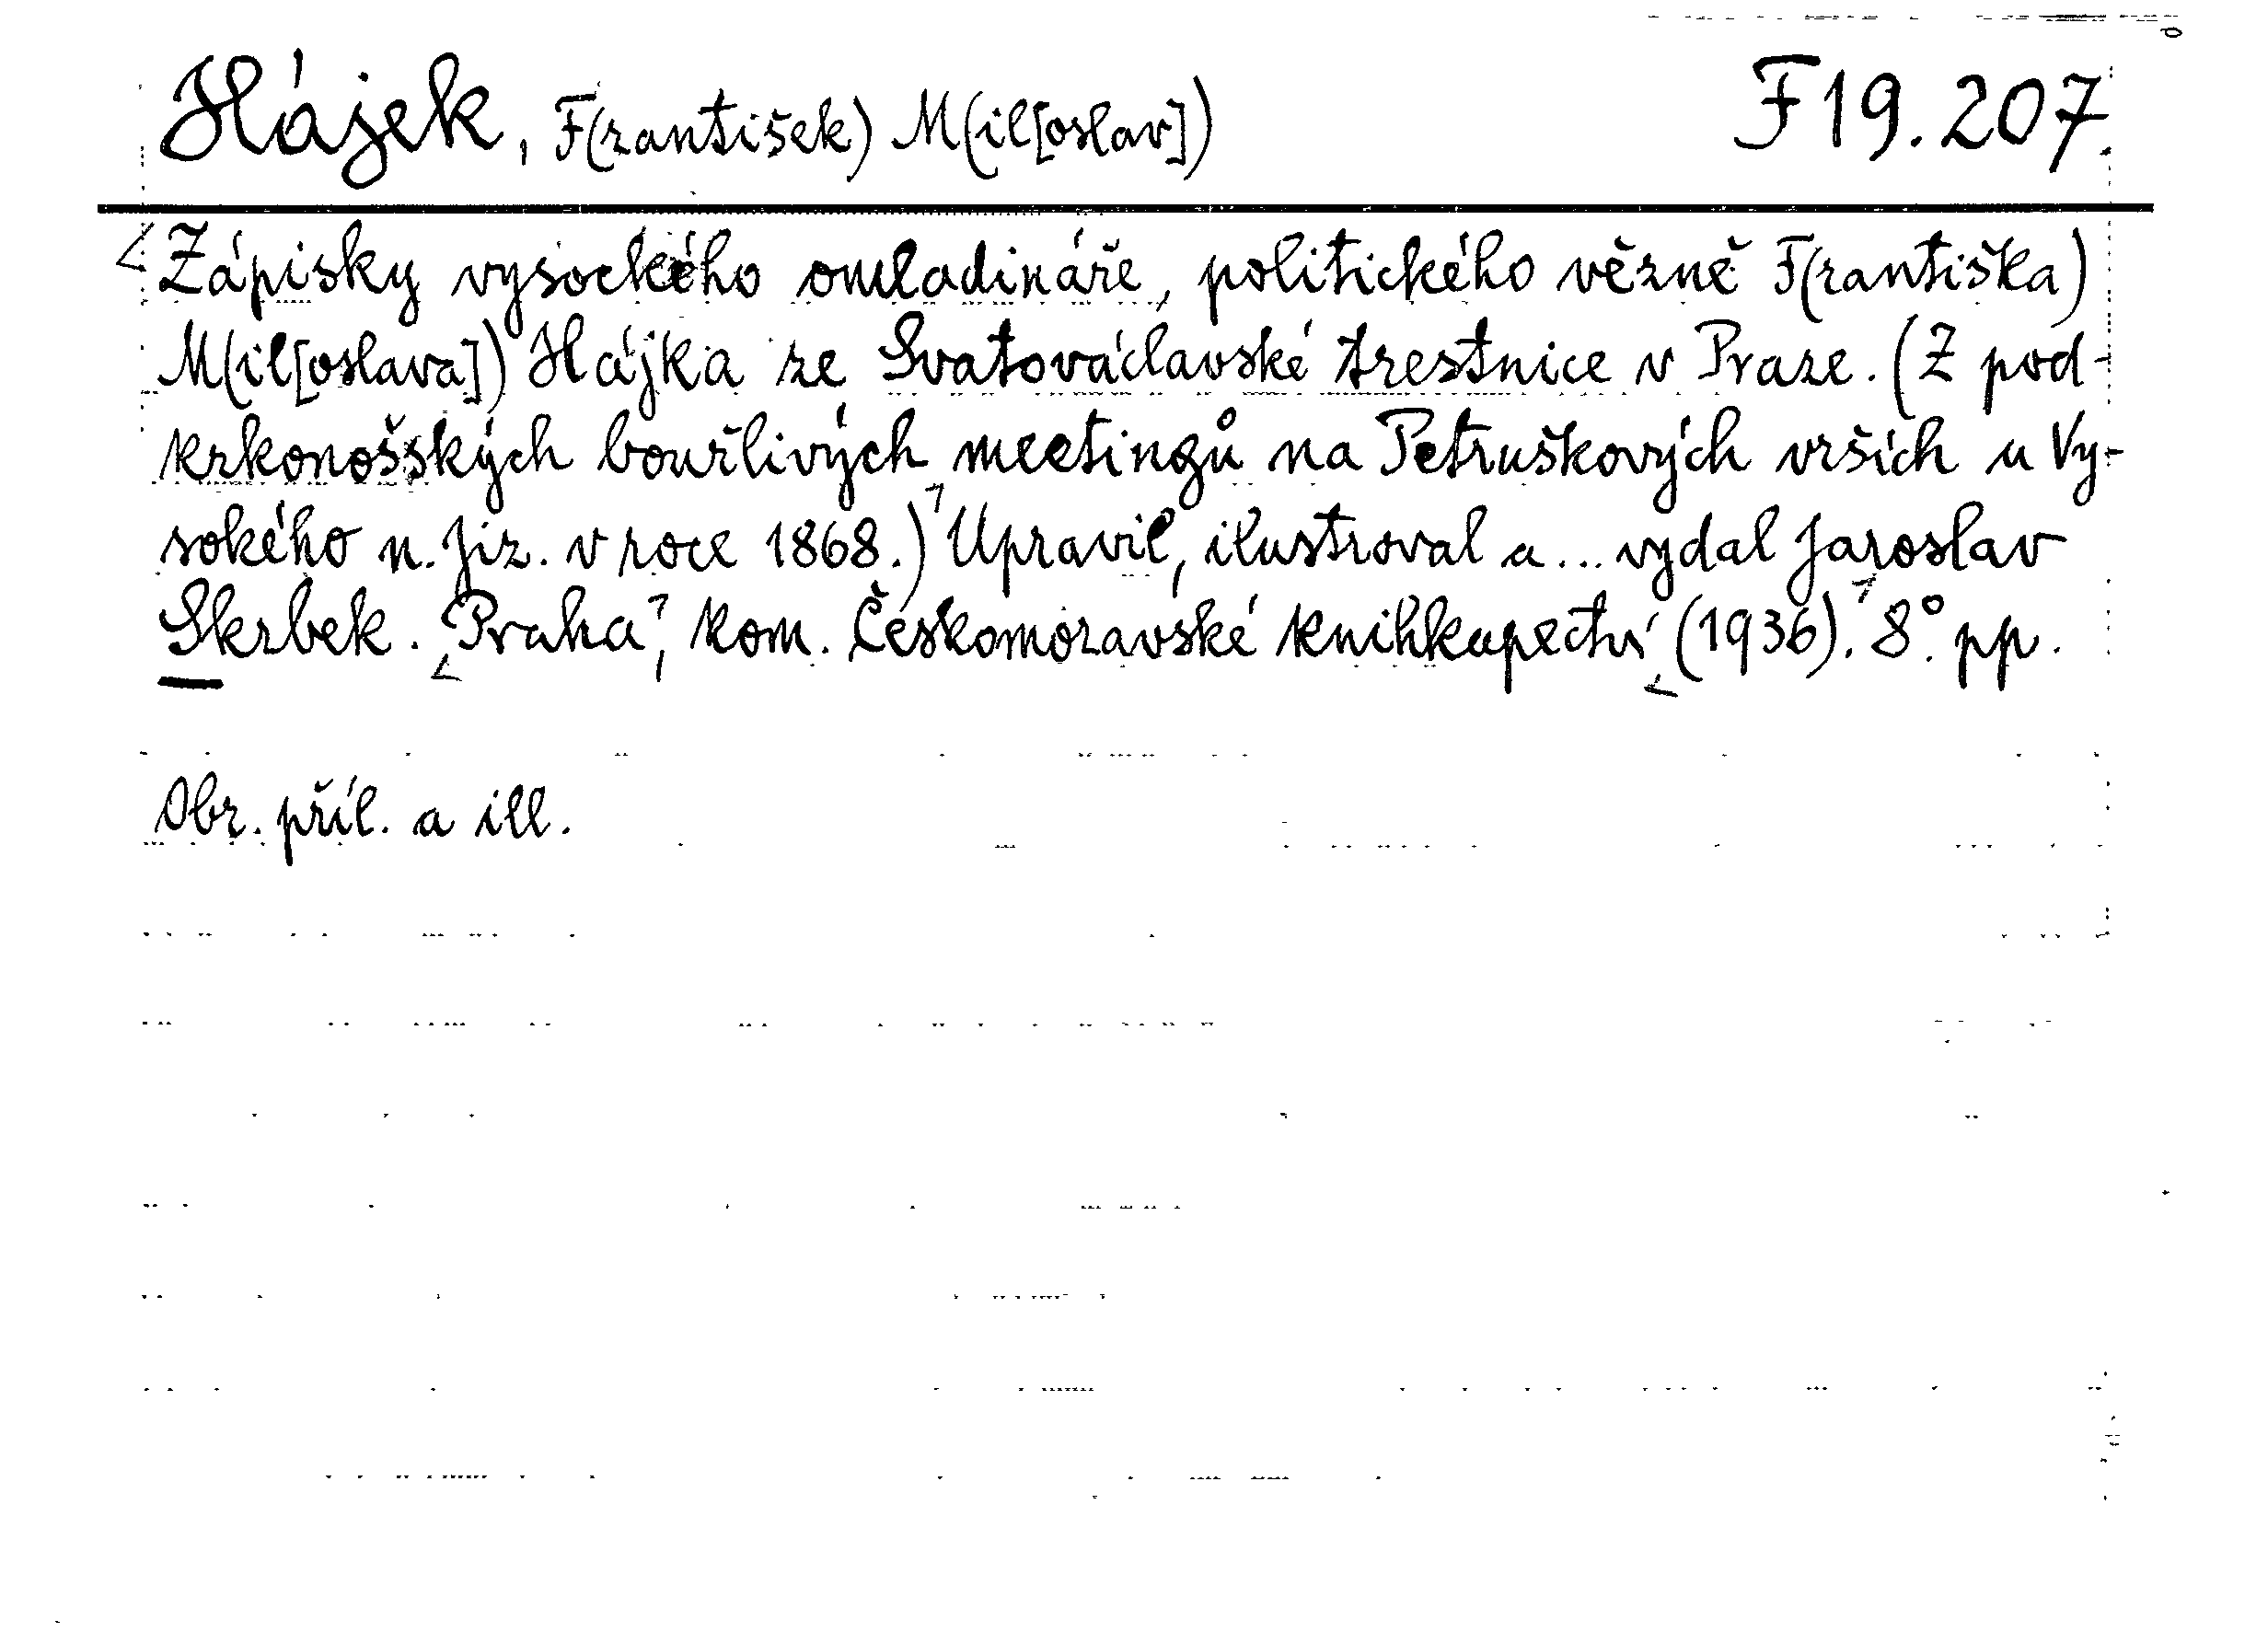 Hájek, F(rantišek) M(il[oslav]) F 19.207.
<Zápisky vysockého omladináře, politického vězně F(rantiška)
M(il[oslava]) Hájka ze Svatováclavské trestnice v Praze. (Z pod-
krkonošských bouřlivých meetingů na Petruškových vrších u Vy-
sokého n. Jiz. v roce 1868.)> Upravil, ilustroval a... vydal Jaroslav
Skrbek. <Praha>, kom. Českomoravské knihkupectví <(1936).> 8°. pp.
Obr. příl. a ill.